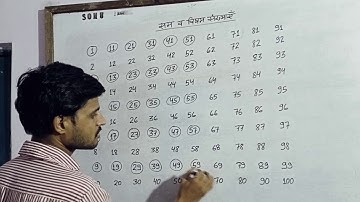 SONU
सम व विषम संख्याएँ
1 11 21 31 41 51 61 71 81 91
2 12 22 32 42 52 62 72 82 92
13 23 33 43 53 63 73 83 93
14 24 34 44 54 64 74 84 94
15 25 35 45 55 65 75 85 95
16 26 36 46 56 66 76 86 96
17 27 37 47 57 67 77 87 97
18 28 38 48 58 68 78 88 98
9 19 29 39 49 59 69 79 89 99
20 30 40 50 70 80 90 100